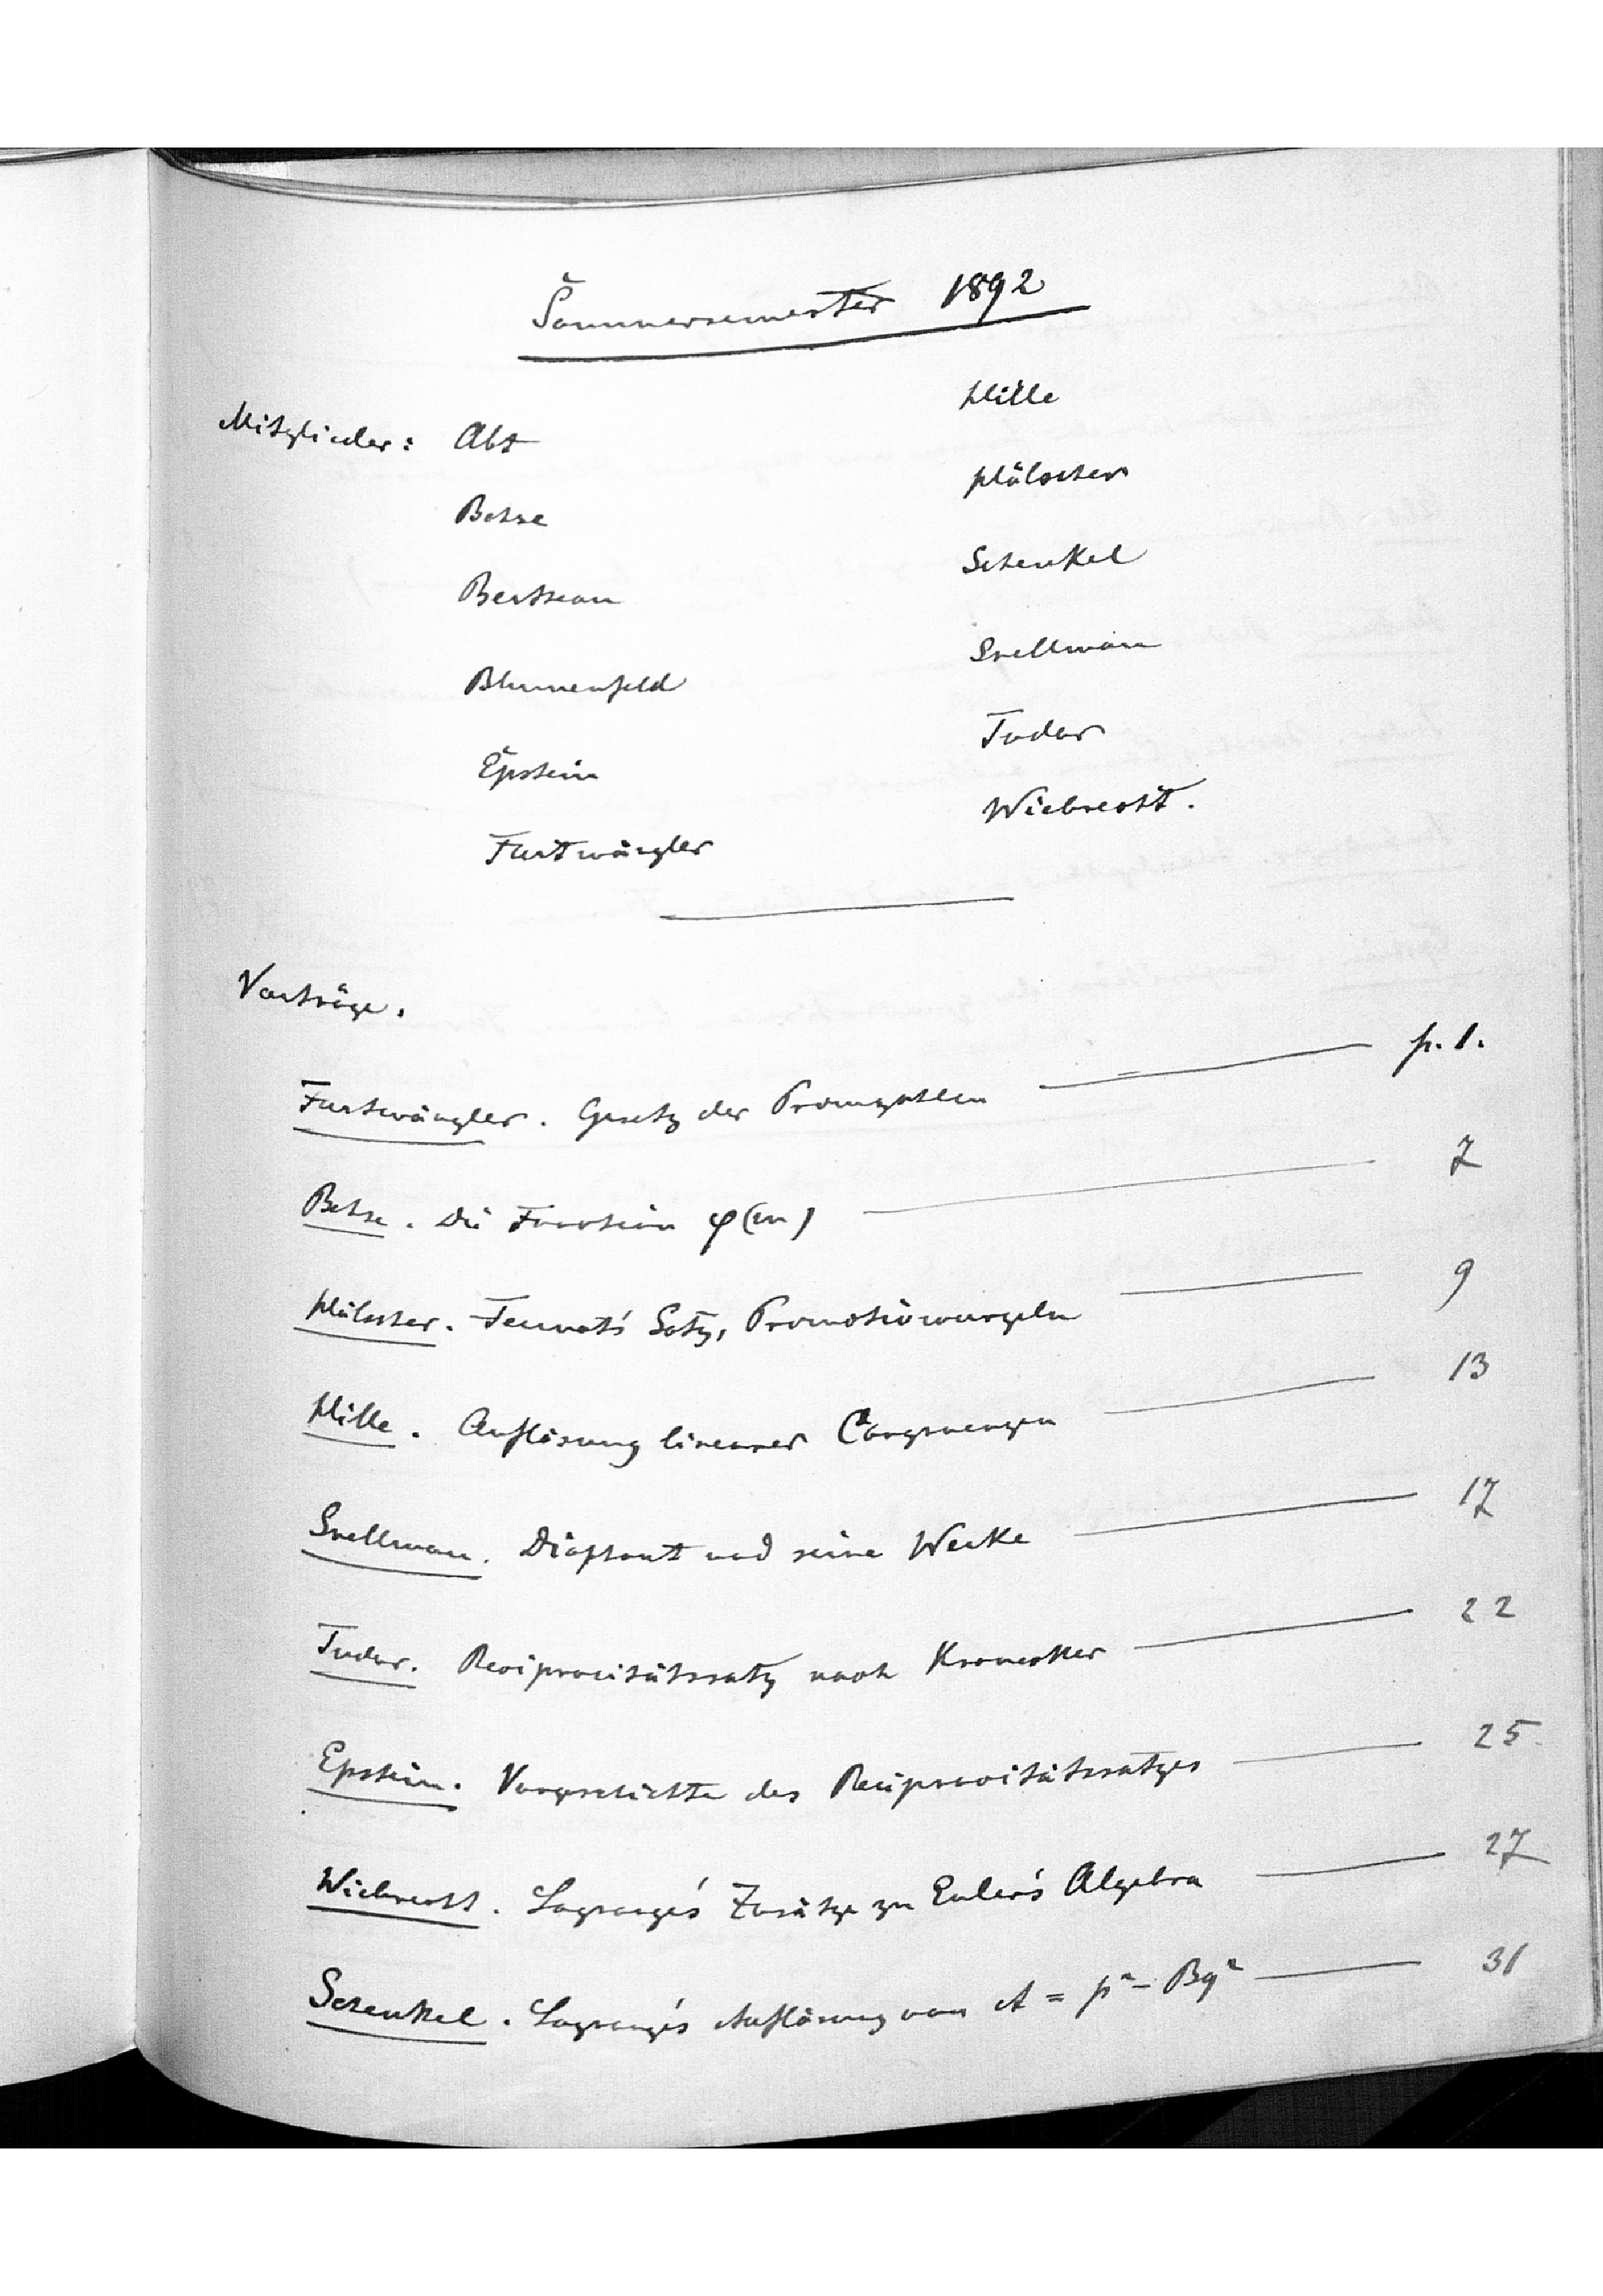 Sommersemester 1892
Mitglieder: Abt
Behse
Bertram
Blumenfeld
Epstein
Furtwängler
Hille
Hölscher
Schenkel
Snellman
Tudor
Wiebrecht.
Vorträge.
Furtwängler. Gesetz der Primzahlen p. 1.
Behse. Die Function φ(m) 7
Hölscher. Fermat's Satz, Primitivwurzeln 9
Hille. Auflösung linearer Congruenzen 13
Snellman. Diophant und seine Werke 17
Tudor. Reciprocitätssatz nach Kronecker 22
Epstein. Vorgeschichte des Reciprocitätssatzes 25
Wiebrecht. Lagrange's Zusätze zu Euler's Algebra 27
Schenkel. Lagrange's Auflösung von A = p² - Bq² 31